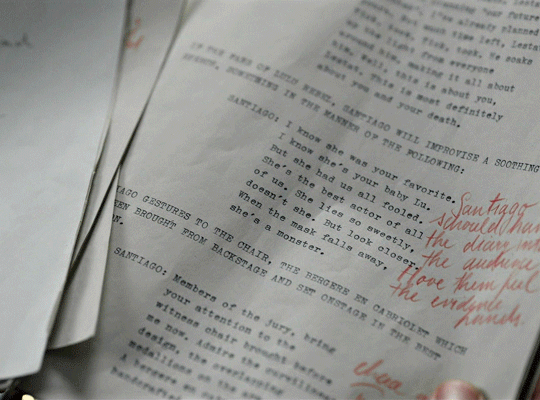 planning your future
I've already planned
But much time left, Lestat.
Tick, tock. We soaks
up the light, from everyone
around him, making it all about
him. Well, this is about you,
Lestat. This is most definitely
about you and your death.
IF THE FANS OF LULU REBEL, SANTIAGO WILL IMPROVISE A SOOTHING
SPEECH, SOMETHING IN THE MANNER OF THE FOLLOWING:
SANTIAGO: I know she was your favorite.
I know she's your baby Lu.
But she had us all fooled.
She's the best actor of all
of us. She lies so sweetly,
doesn't she. But look closer.
When the mask falls away,
she's a monster.
Santiago
should
the diary
the audience
Have them feel
the evidence
hands.
IAGO GESTURES TO THE CHAIR, THE BERGERE EN CABRIOLET WHICH
EEN BROUGHT FROM BACKSTAGE AND SET ONSTAGE IN THE BEST
N.
SANTIAGO: Members of the jury, bring
your attention to the
witness chair brought before
me now. Admire the curvilinear
design, the overlapping
medallions on the
A bergere en
handcrafted